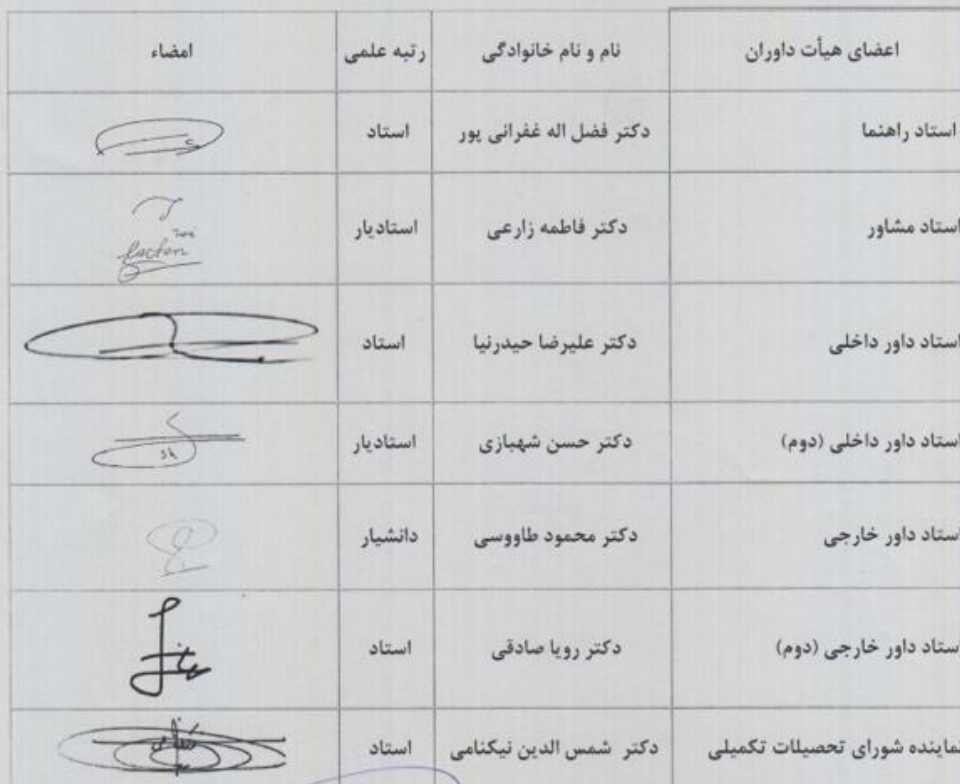 اعضای هیأت داوران نام و نام خانوادگی رتبه علمی امضاء
استاد راهنما دکتر فضل اله غفرانی پور استاد
استاد مشاور دکتر فاطمه زارعی استادیار
استاد داور داخلی دکتر علیرضا حیدرنیا استاد
استاد داور داخلی (دوم) دکتر حسن شهبازی استادیار
استاد داور خارجی دکتر محمود طاووسی دانشیار
استاد داور خارجی (دوم) دکتر رویا صادقی استاد
نماینده شورای تحصیلات تکمیلی دکتر شمس الدین نیکنامی استاد